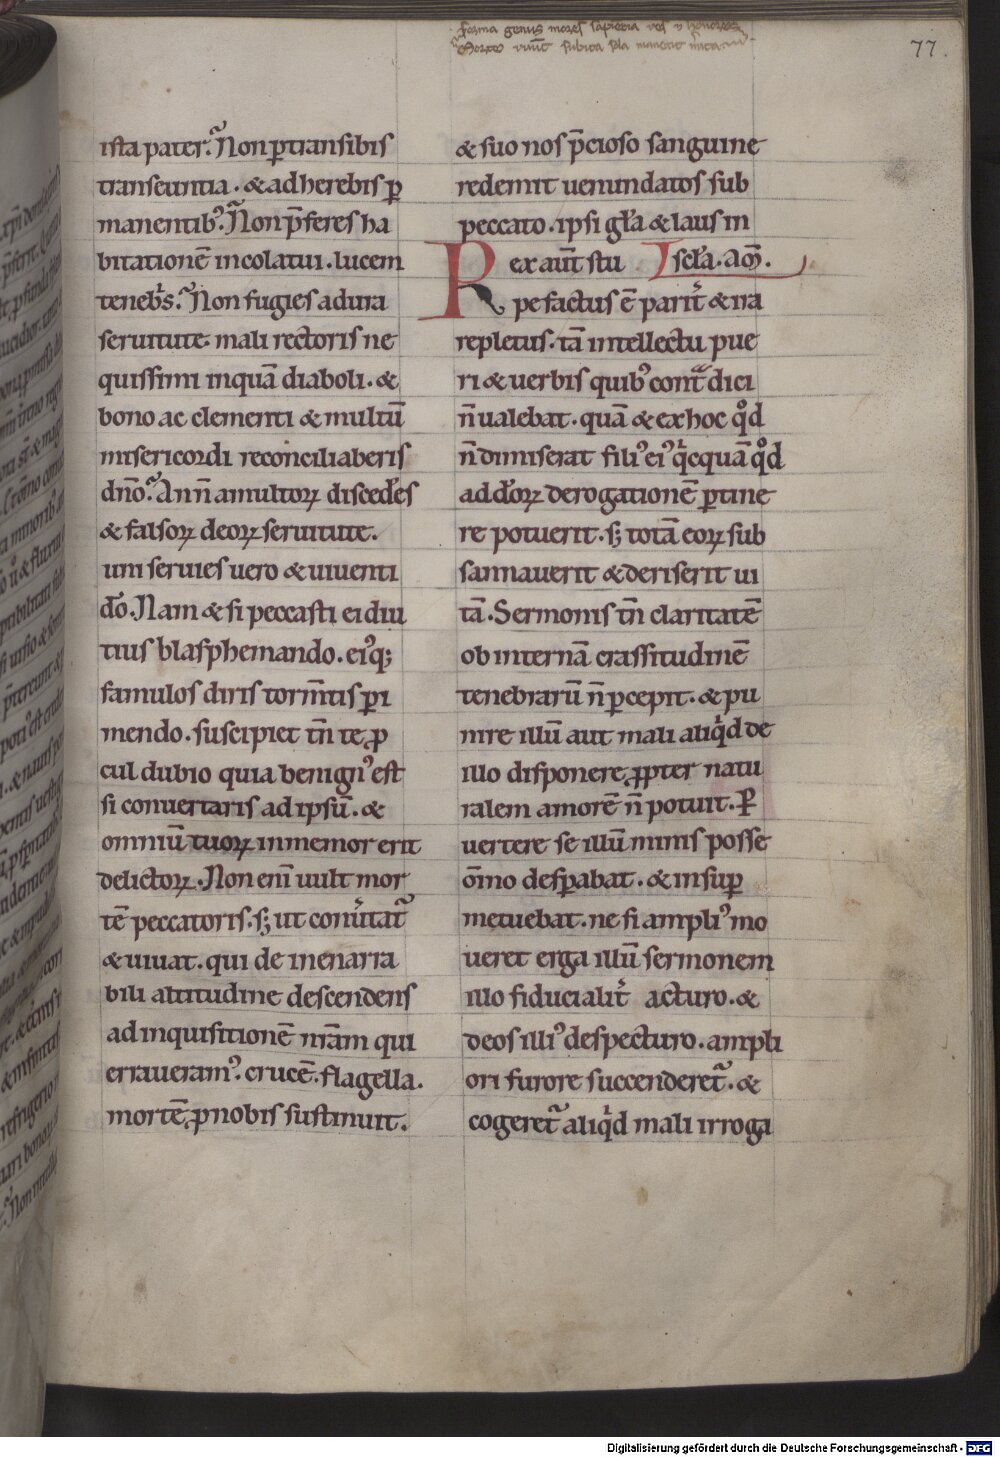 forma genus mores sapiencia res & honores
Morte subita sola manent merita
77.
ista pater. Non ꝑtransibis
transeuntia . & adherebis ꝑ
manentib᾽. Non p̄feres ha
bitationē incolatui . lucem
teneb̃s. Non fugies a dura
seruitute mali rectoris ne
quissimi inquā diaboli . &
bono ac clementi & multū
misericordi reconciliaberis
dn̄o. An n̄ a multoꝝ discedēs
& falsoꝝ deoꝝ seruitute.
uni seruies uero & uiuenti
d̄o. Nam & si peccasti ei diu
tius blasphemando . ei᾽q;
famulos diris torm̄tis ꝑi
mendo . suscipiet tn̄ te ꝓ
cul dubio quia benign᾽ est
si conuertaris ad ipsū . &
omniū tuoꝝ inmemor erit
delictoꝝ. Non eni uult mor
tē peccatoris . sꝫ ut conũtat᷑
& uiuat . qui de inenarra
bili altitudine descendens
ad inquisitionē nr̄am qui
erraueram᾽. crucē. flagella.
mortē ꝓ nobis sustinuit.
& suo nos p̄cioso sanguine
redemit uenundatos sub
peccato . ipsi gl̄a & laus in
Rex aut̄ stu scl̄a . am̄.
pefactus ē parit̾ & ira
repletus . tā intellectu pue
ri & uerbis quib᾽ contᷓdici
n̄ ualebat . quā & ex hoc qͦd
n̄ dimiserat fili᾽ ei᾽ qͥcquā qͦd
ad d̄oꝝ derogationē ꝑtine
re potuerit . sꝫ totā eoꝝ sub
sannauerit & deriserit ui
tā. Sermonis tn̄ claritatē
ob internā crassitudinē
tenebrarū n̄ ꝑcepit . & pu
nire illū aut mali aliqͥd de
illo disponere ꝓpter natu
ralem amorē n̄ potuit. Ꝑ
uertere se illū minis posse
om̄o desꝑabat . & insuꝑ
metuebat . ne si ampli᾽ mo
ueret erga illū sermonem
illo fiducialit̾ acturo . &
deos illi᾽ despecturo . ampli
ori furore succenderet᷑. &
cogeret᷑ aliqͥd mali irroga
Digitalisierung gefördert durch die Deutsche Forschungsgemeinschaft - DFG